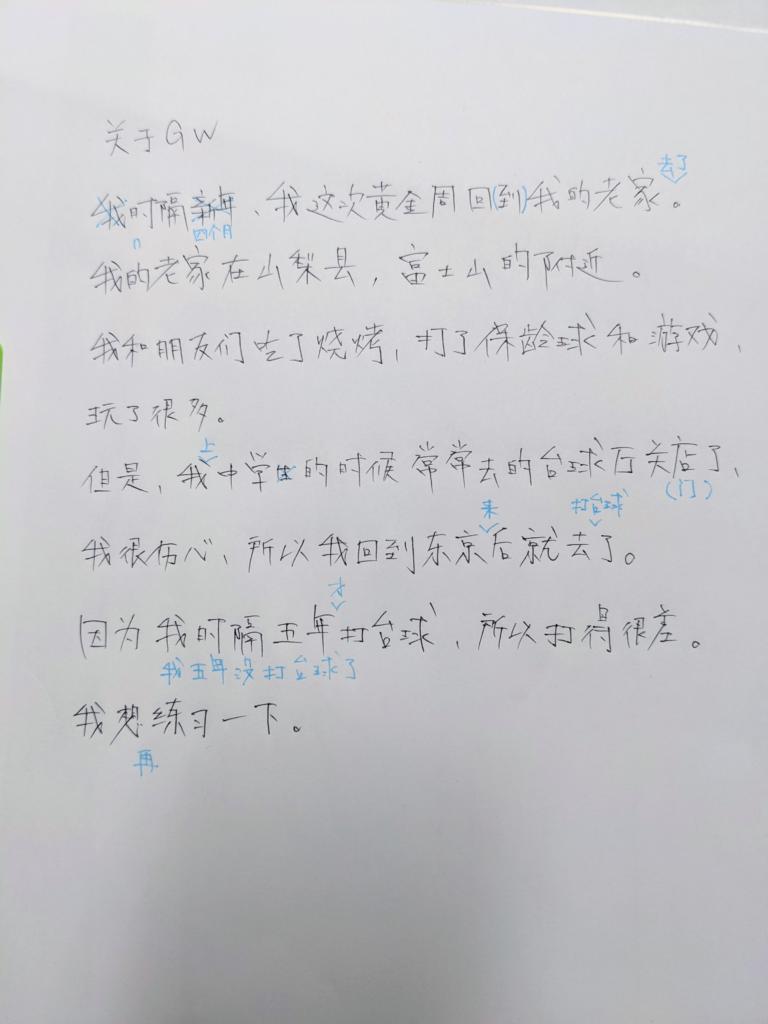 关于GW
去了
我时隔新年、我这次黄金周回(到)我的老家。
四个月
我的老家在山梨县，富士山的附近。
我和朋友们吃了烧烤，打了保龄球和游戏，
玩了很多。
上
但是，我中学生的时候常常去的台球厅关店了、
(门)
来 打台球
我很伤心、所以我回到东京后就去了。
才
因为我时隔五年打台球，所以打得很差。
我五年没打台球了
我想练习一下。
再